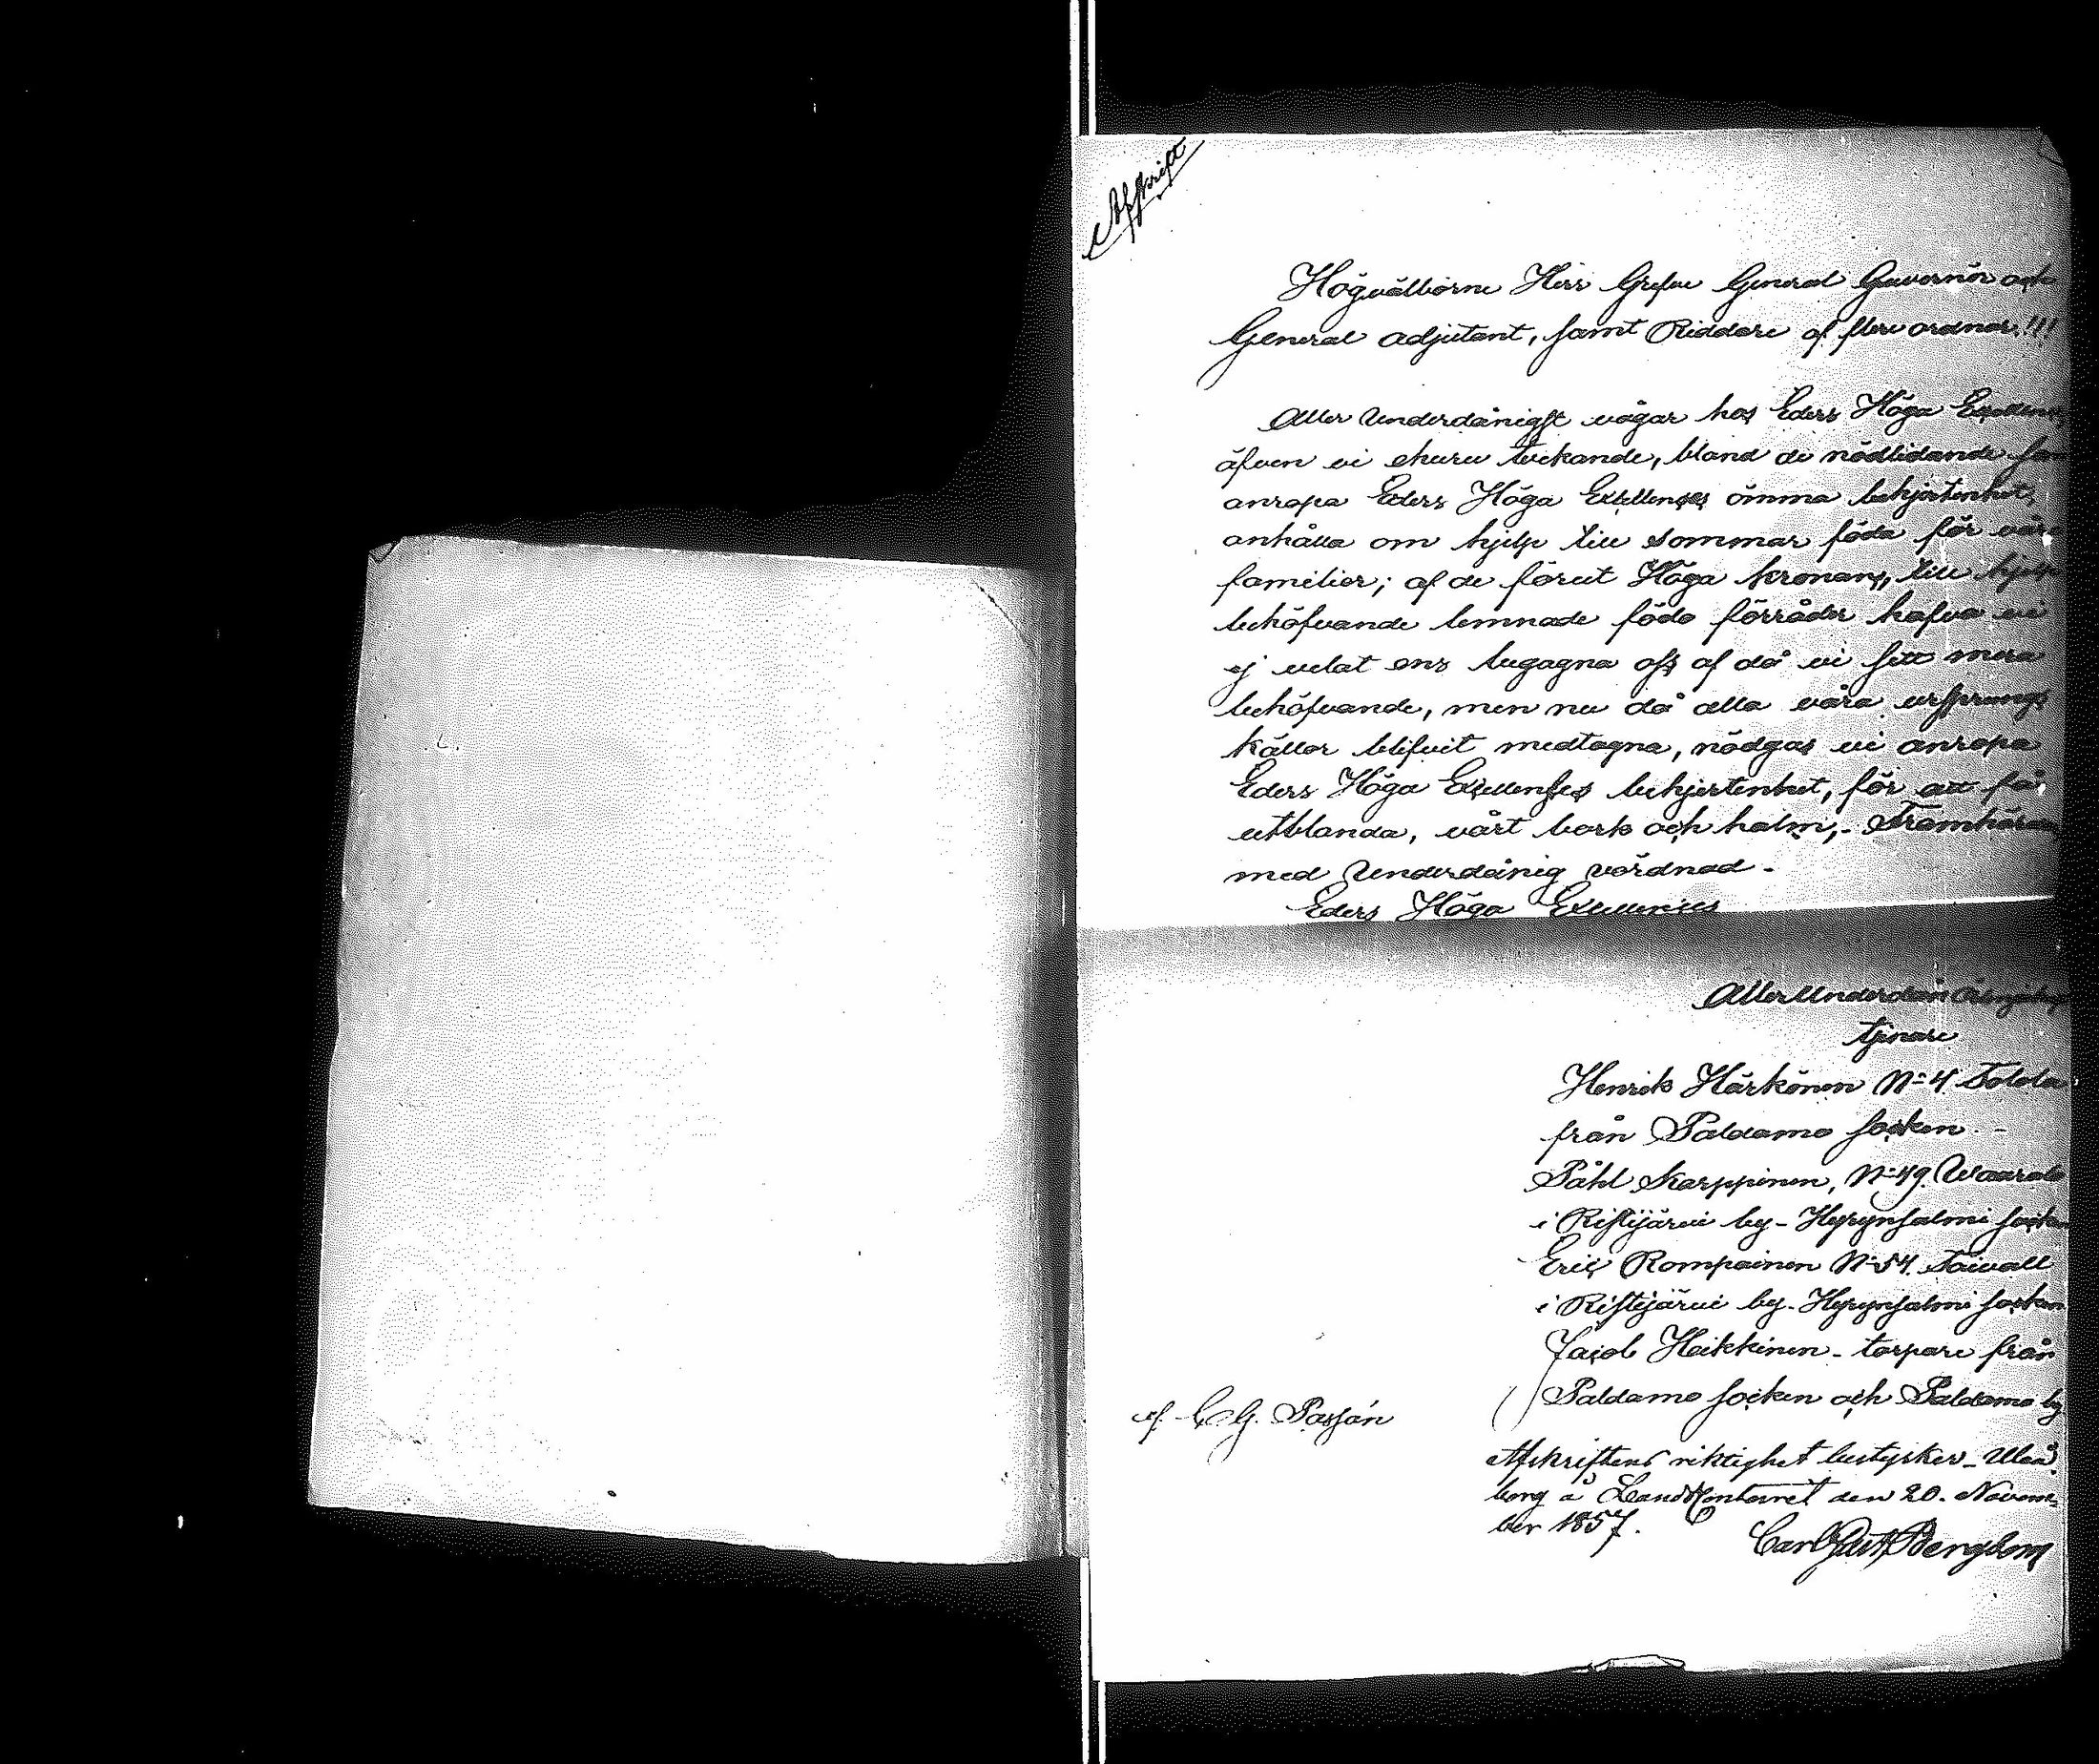 Afskrift
Högvälborne Herr Grefve General Guvernör och
General adjutant, samt Riddare af flere ordnar!!!
Aller Underdånigst vågar hos Eders Höga Exellens
äfven vi ehuru tvekande, bland de nödlidande
anropa Eders Höga Exellenses ömma behjertenhet,
anhålla om hjelp till sommar föda för våra
familier; af de förut Höga Kronans, till hjelp
behöfvande lemnade födo förråder hafva vi
ej velat ens begagna oss af då vi sett mera
behöfvande, men nu då alla våra ursprungs
källor blifvit medtagna, nödgas vi anropa
Eders Höga Exellenses behjertenhet, för att få
utblanda, vårt bark och halm,- Framhärdar
med Underdånig vördnad -
Eders Höga Exellenses
Aller Underdån
tjenare
Henrik Härkönen N=4 Tolola
från Paldamo socken. -
Påhl Karppinen, N=49. Waarala
i Ristijärvi by - Hyrynsalmi socken
Eric Rompainen N=54. Taivall
i Ristijärvi by - Hyrynsalmi socken
Jacob Heikkinen - torpare från
Paldamo socken och Paldamo by
af C. G. Passján
Afskriftens riktighet bestyrker - Uleå
borg å LandsKontoiret den 20. Novem-
ber 1857.
Carl Gust Bergbom